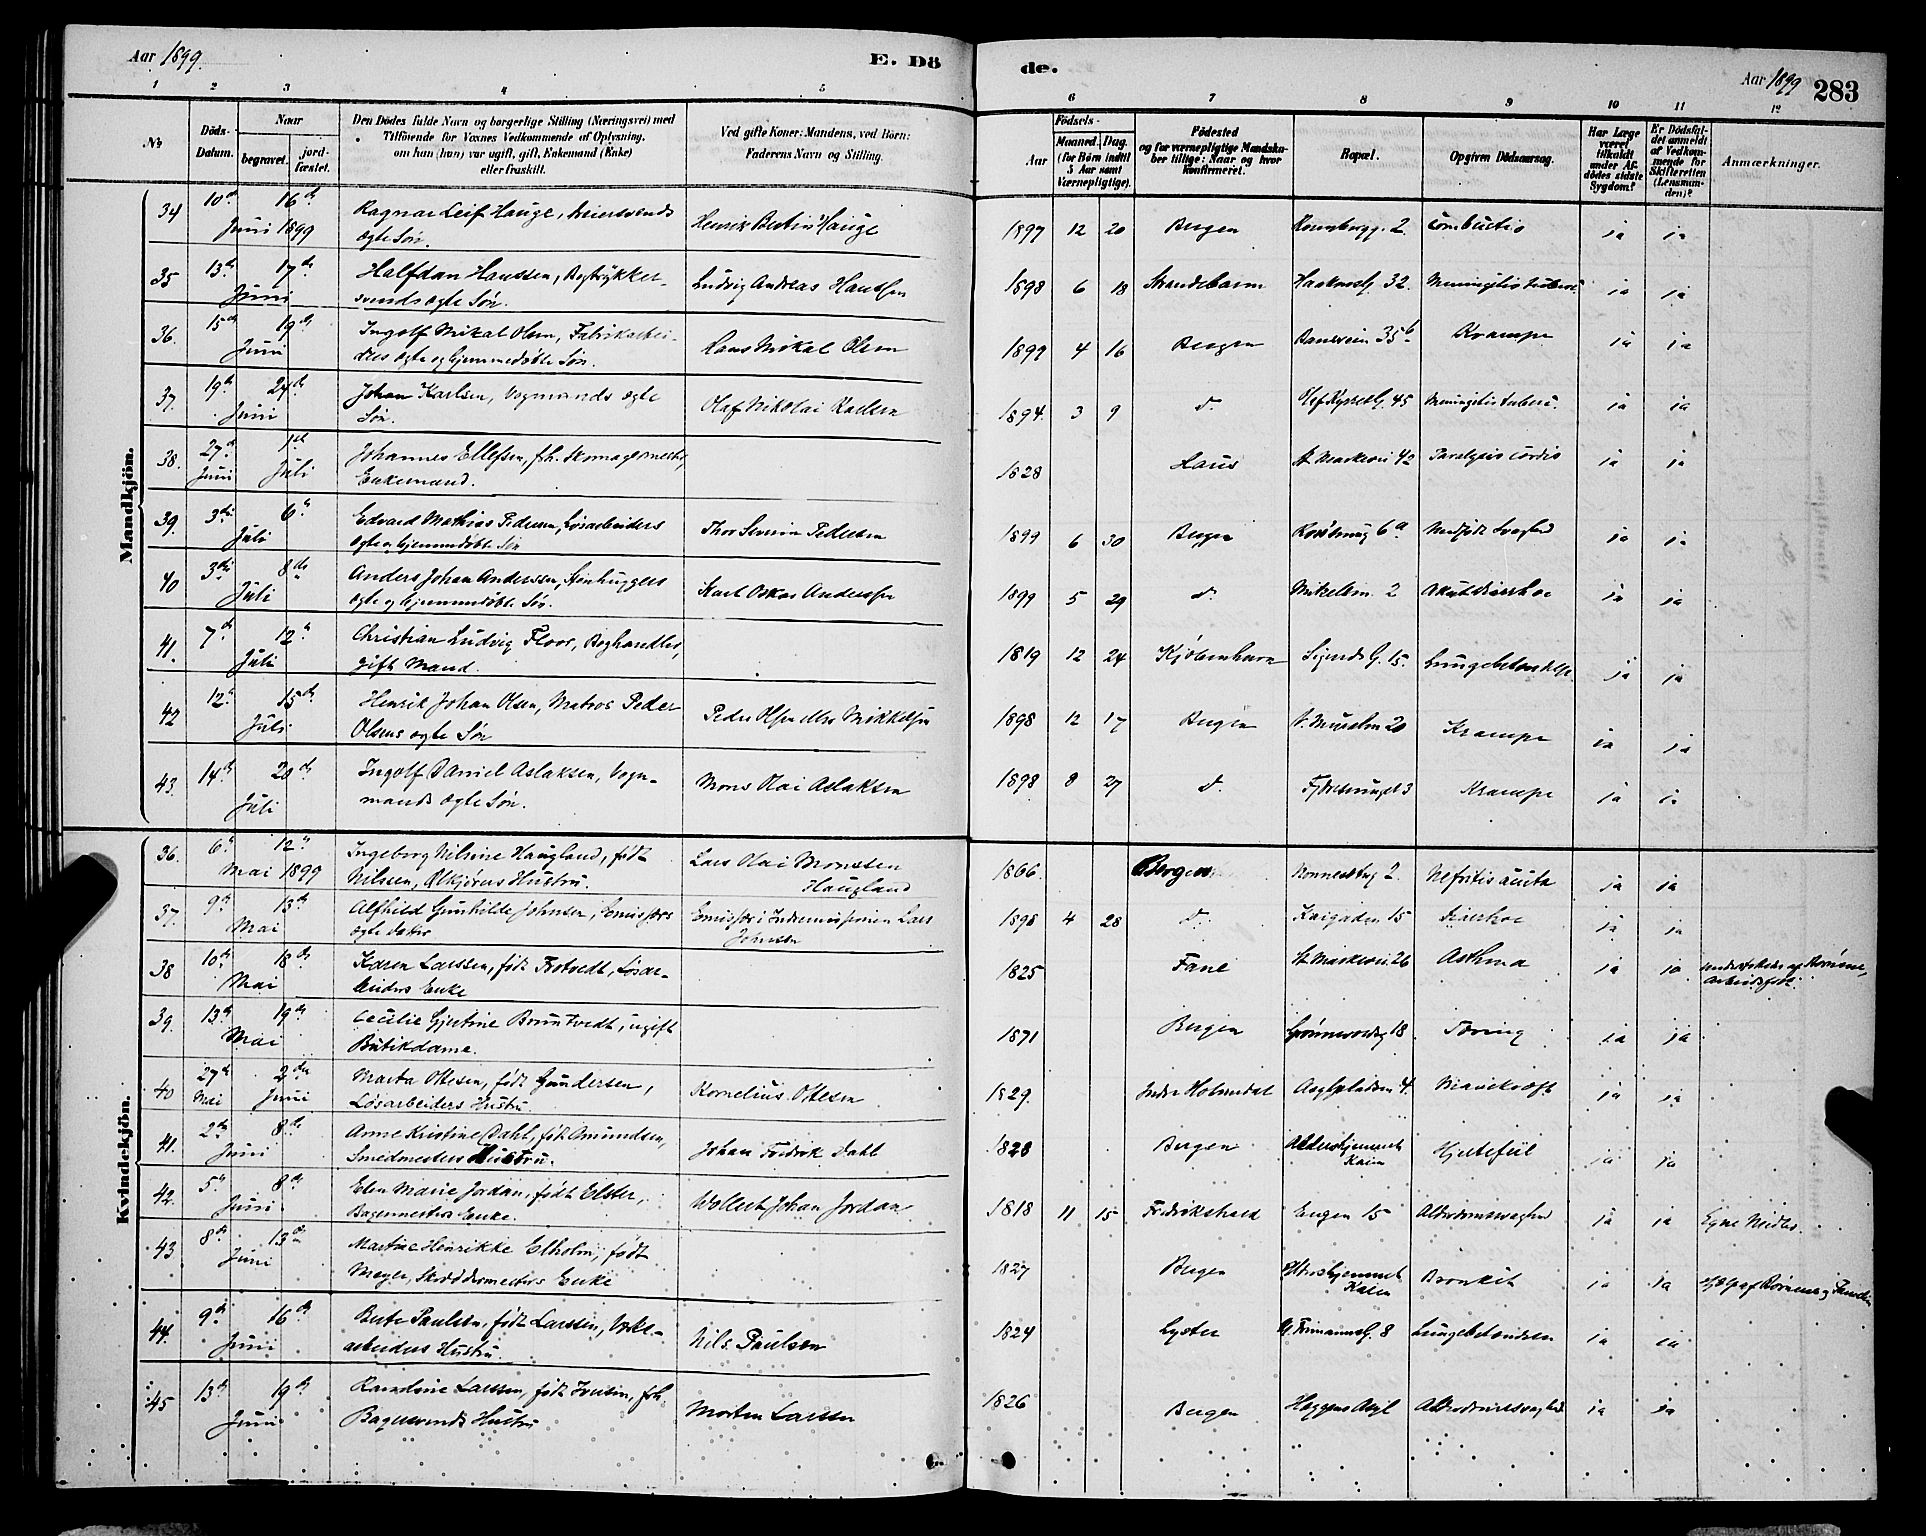 Aar 1899. E. Dö de. Aar 1899 283
1 2 3 4 5 6 7 8 9 10 11 12
No Döds-Datum. Naar begravet. jord-fæstet. Den Dödes fulde Navn og borgerlige Stilling (Næringsvei) med Tilföiende for Voxnes Vedkommende af Oplysning, om han (hun) var ugift, gift, Enkemand (Enke) eller fraskilt. Ved gifte Koner: Mandens, ved Börn: Faderens Navn og Stilling. Födsels- Aar Maaned. Dag. (for Börn indtil 5 Aar samt Værnepligtige). Födested og for værnepligtige Mandskaber tillige: Naar og hvor konfirmeret. Bopæl. Opgiven Dödsaarsag. Har Læge været tilkaldt under Afdödes sidste Sygdom? Er Dödsfaldet anmeldt af Vedkommende for Skifteretten (Lensmanden)? Anmærkninger.
Mandkjön.
34 10de Juni 16de 1899 Ragnar Leif Hauge, Meiersvends ægte Søn. Henrik Bertin Hauge 1897 12 20 Bergen 2. Combustio ja ja
35 13de 17de Juni Halfdan Hanssen, Bogtrykkersvends ægte Søn. Ludvig Andreas Hanssen 1898 6 18 Strandebarm Haakonsg. 32. Meningitis tuberc. ja ja
36. 15de 19de Juni Ingolf Mikal Olsen, Fabrikarbeiders ægte og hjemmedøbte Søn. Hans Mikal Olsen 1899 4 16 Bergen 35b Krampe ja ja
37. 19de 24de Juni Johan Karlsen, Vognmands ægte Søn. Olaf Nikolai Karlsen 1894. 3 9 d. 45 Meningitis tuberc. ja ja
38. 27de Juni 1ste Juli Johannes Ellefsen, fh. Skomagermester, Enkemand. 1828 Haus St. Markvei 42 Paralysis cordis ja ja
39. 3die 6te Juli Edvard Mathias Pedersen, Løsarbeiders ægte hjemmedøbte Søn Thor Severin Pedersen 1899 6 30 Bergen 6a Medfødt Svaghed ja ja
40 3die 8de Juli Anders Johan Anderssen, Stenhuggers ægte og hjemmedøbte Søn. Karl Oskar Anderssen 1899 5 29 d. 2 Akut Diarrhoe ja ja
41. 7de 12te Juli Christian Ludvig Floor, Boghandler, gift Mand. 1819 12 24 Kjøbenhavn Sigurdsg. 15. Lungebetændelse ja ja
42 12te 15de Juli Henrik Johan Olsen, Matros Peder Olsens ægte Søn Peder Olsen eller Mikkelsen 1898 12 17 Bergen 20 Krampe ja ja
43. 14de 20de Juli Ingolf Daniel Aslaksen, Vognmands ægte Søn. Mons Olai Aslaksen 1898 8 27 d. 3 Krampe ja ja
Kvindekjön.
36. 6te 12te Mai 1899 Ingeborg Nilsine Haugland, født Nilssen, Ølkjørers Hustru. Lars Olai Monssen Haugland 1866. Bergen 2. Nefritis acuta ja ja
37. 9de 13de Mai Alfhild Gunhilde Johnsen, Emissærs ægte Datter Emissær i Indremissionen Lars Johnsen 1898 4 28 d. Kaigaden 15 Diarrhoe ja ja
38 10de 18de Mai Karen Larssen, født Totvedt, Løsarbeiders Enke 1825 Fane St. Markvei. 26 Asthma ja ja
39. 13de 19de Mai Cecilie Gjertine Bruntvedt, ugift Butikdame. 1871 Bergen 18 Tæring ja ja
40 27de Mai 2den Juni Marta Ottesen, født Gundersen, Løsarbeiders Hustru. Kornelius Ottesen 1829. Indre Holmedal Asylpladsen 4. Mavekræft ja ja
41. 2den 8de Juni Anne Kristine Dahl, født Amundsen, Smedmesters Hustru. Johan Fredrik Dahl 1828 Bergen Aldershjemmet Kaien Hjertefeil ja ja
42. 5te 8de Juni Elen Marie Jordan, født Elster, Bagermesters Enke. Wollert Johan Jordan 1818 11 15 Fredrikshald Engen 15 Alderdomssvaghed ja ja Egne Midler.
43 8de 13de Juni Martine Henrikke Elholm, født Meyer, Skræddermesters Enke 1827 Bergen Aldershjemmet Kaien Bronkit ja ja
44. 9de 16de Juni Berte Paulsen, født Larssen, arbeiders Hustru. Nils Paulsen 1824 Lyster 8 Lungebetændelsen ja ja
45 13de 19de Juni Randine Larssen, født Iversen, fh. Bagersvends Hustru Morten Larssen 1826 Bergen Heggens Asyl Alderdomssvaghed ja ja